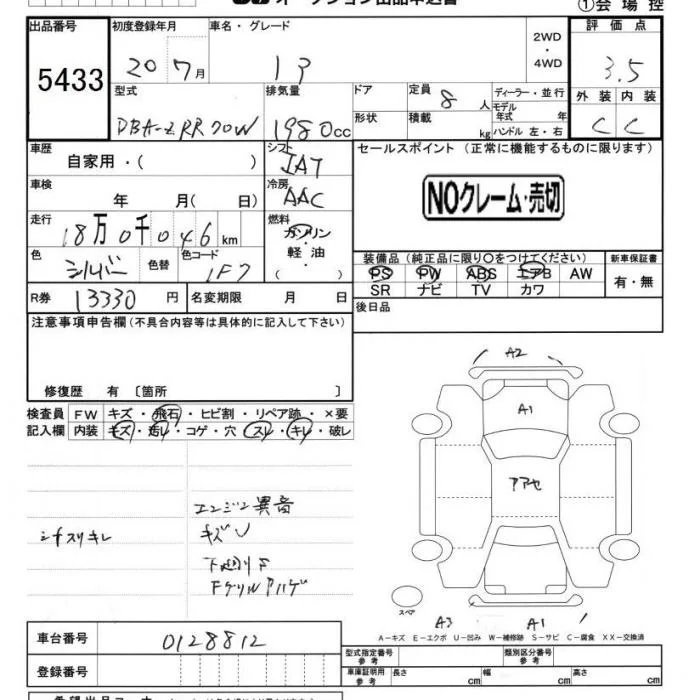 オークション出品申込書
①会場控
出品番号 初度登録年月 車名・グレード 2WD・4WD 評価点
5433 20 7月 3.5
型式 排気量 ドア 定員 8人 ディーラー・並行 外装 内装
DBA-ZRR70W 1980cc 形状 積載 kg モデル年式 年 ハンドル 左・右 C C
車歴 シフト セールスポイント(正常に機能するものに限ります)
自家用・( ) IAT
車検 年 月( 日) 冷房 AAC NOクレーム・売切
走行 燃料
18万0千046km ガソリン・軽油( )
色 シルバー 色替 色コード 1F7
装備品(純正品に限り○をつけてください) 新車保証書
PS PW ABS エアB AW 有・無
SR ナビ TV カワ
R券 13330円 名変期限 月 日 後日品
注意事項申告欄(不具合内容等は具体的に記入して下さい)
修復歴 有〔箇所 〕
検査員 FW キズ・飛石・ヒビ割・リペア跡・×要
記入欄 内装 キズ・汚レ・コゲ・穴・スレ・キレ・破レ
エンジン異音
シートスリキレ キズU
下廻りF
A2
A1
スペア
A3 A1
A-キズ E-エクボ U-凹み W-補修跡 S-サビ C-腐食 XX-交換済
車台番号 0128812
型式指定番号 参考 類別区分番号 参考
登録番号 車庫証明用 参考 長さ cm 幅 cm 高さ cm
希望出品コーナー